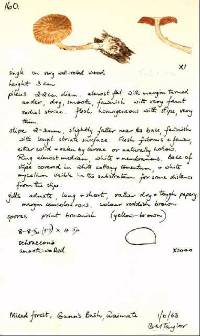 160.
X1
single on very well-rotted wood
height 3 cm
pileus 2-2 cm diam. almost flat with margin turned
under, dry, smooth, fawnish with very faint
radial striae. flesh homogeneous with stipe, very
thin.
stipe 2-3mm, slightly flatter near the base, fawnish
with length striate surface. Flesh fibrous & fawn,
either solid or eaten by larvae or naturally hollow.
Ring almost median white & membranous. Base of
stipe covered in white cottony tomentum, & white
mycelium visible in the substratum for some distance
from the stipe
gills adnate, long & short, rather dry & tough papery
margin concolorous. colour reddish brown
spores print brownish (yellow-brown)
smooth walled
X2000
Mixed forest, Gunn's Bush, Waimate 1/6/68
G M Taylor